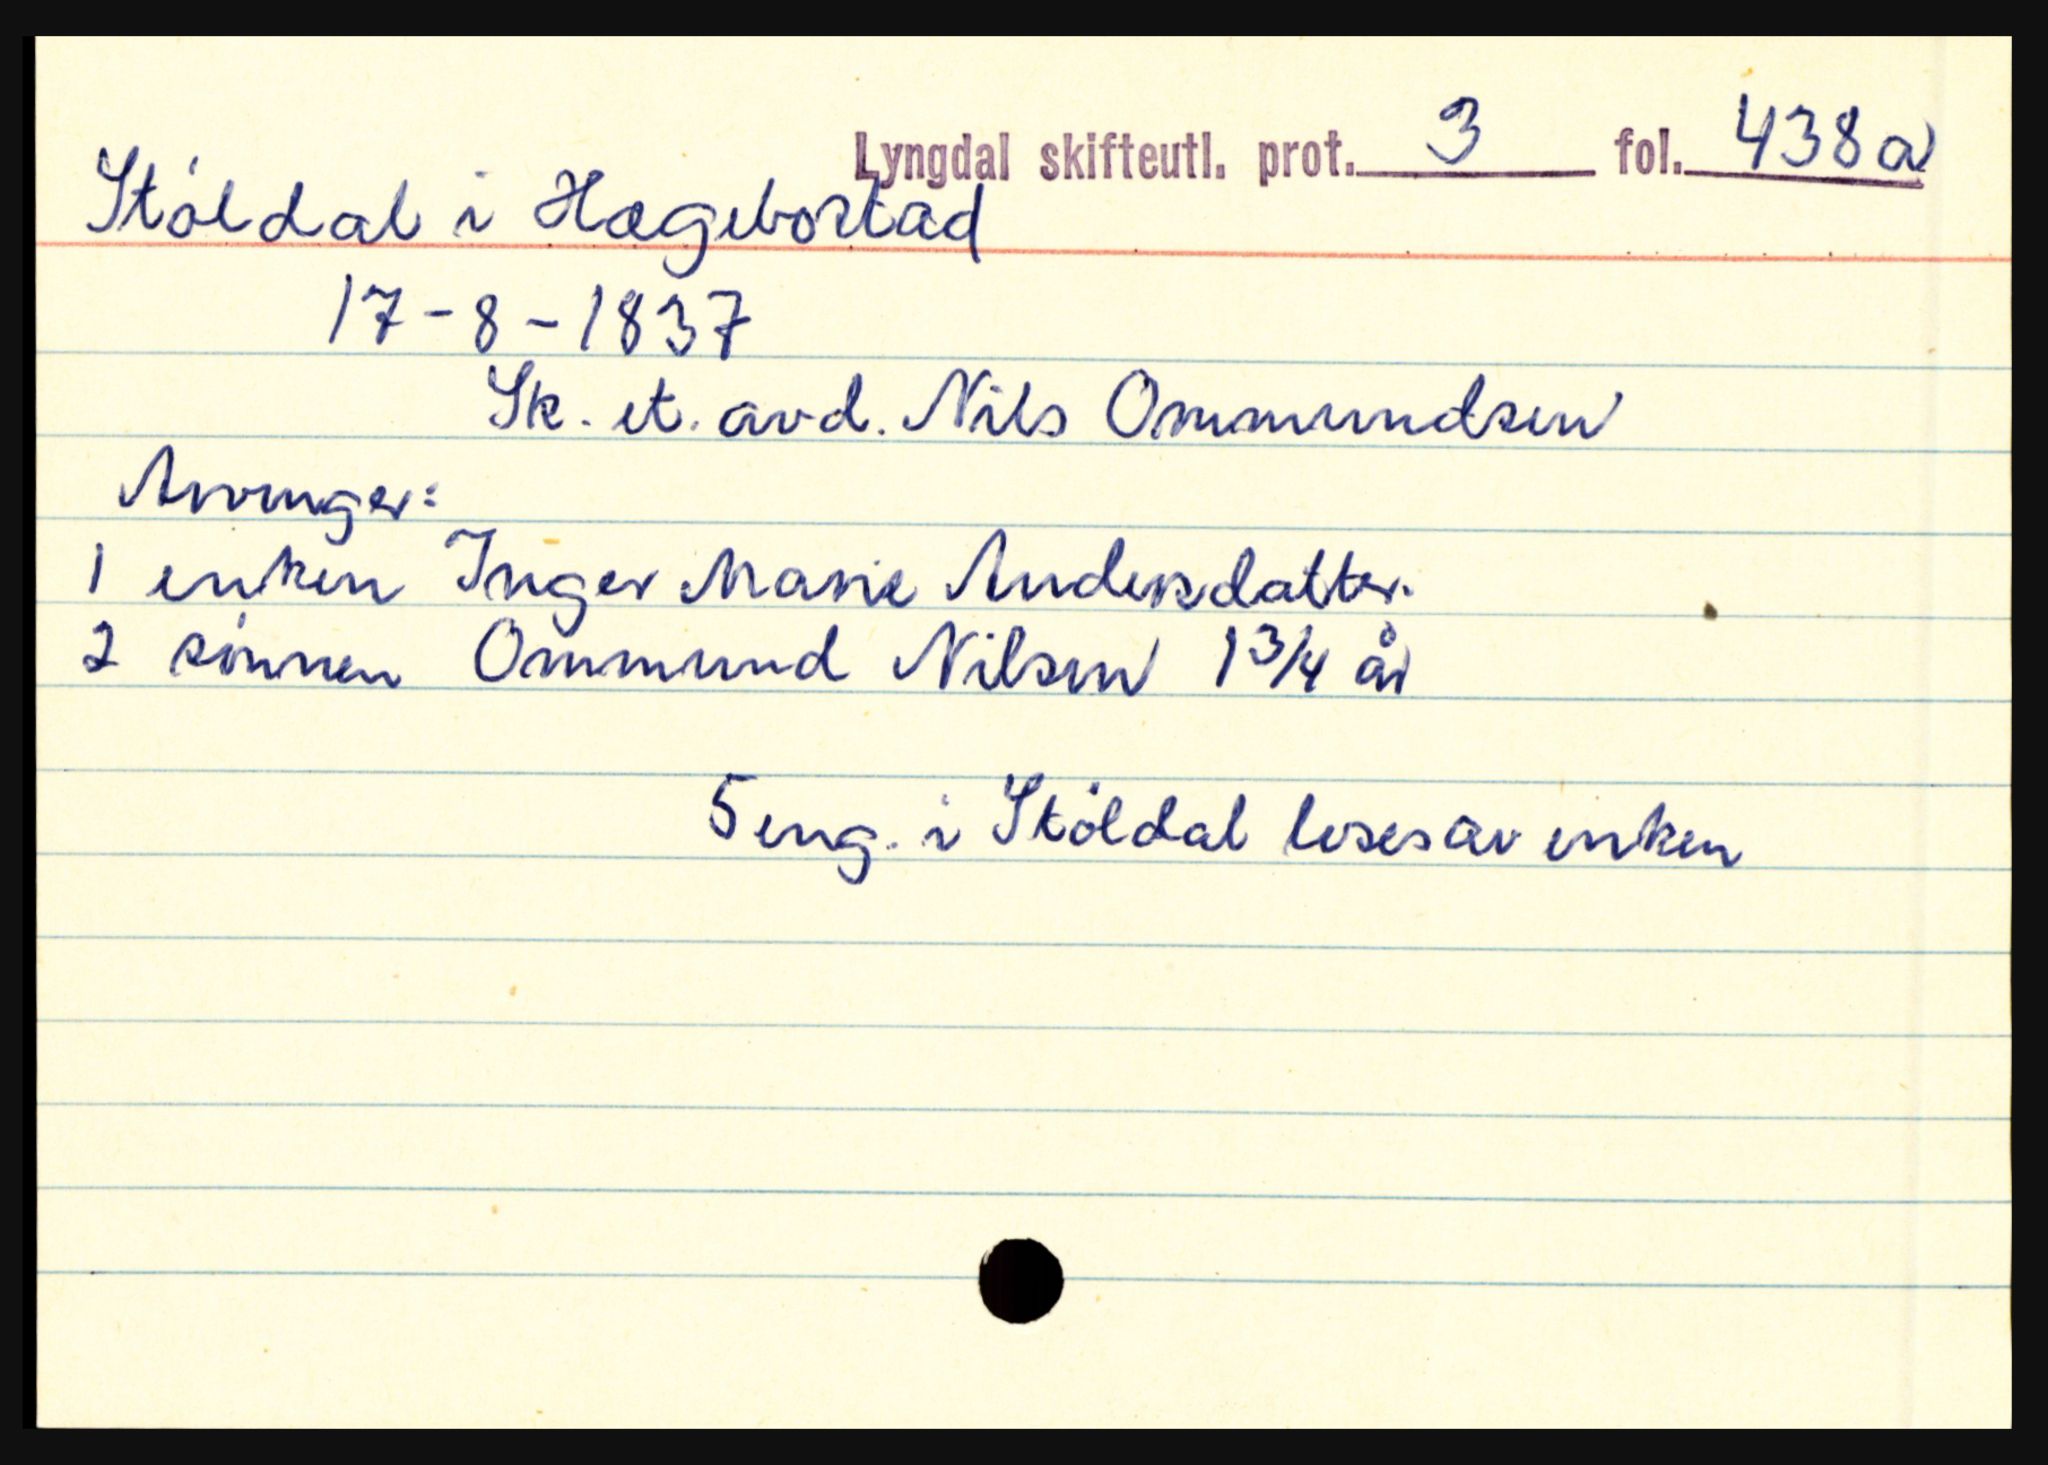 Lyngdal skifteutl. prot. 3 fol. 438a
Støldal i Hægebostad
17-8-1837
Sk. et. avd. Nils Ommundsen
Arvinger:
1 enken Inger Marie Andersdatter.
2 sønnen Ommund Nilsen 1 3/4 år
5 eng. i Støldal løses av enken